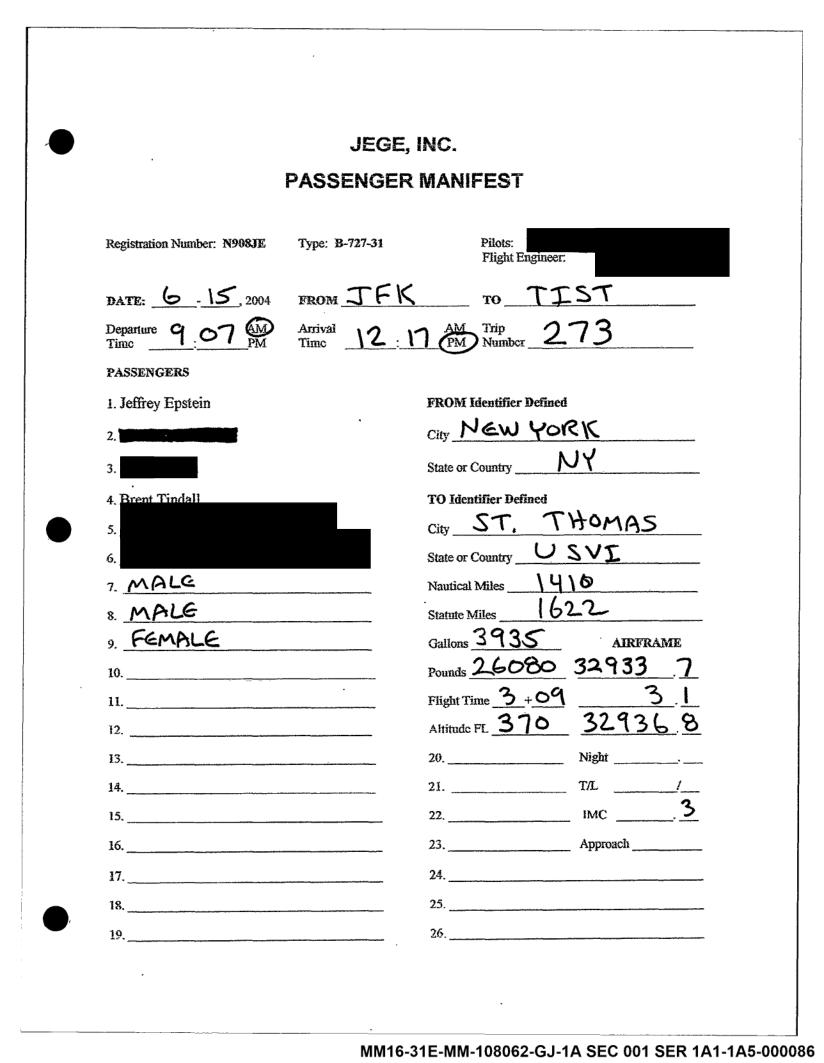 JEGE, INC.
PASSENGER MANIFEST
Registration Number: N908JE Type: B-727-31 Pilots:
Flight Engineer:
DATE: 6 - 15, 2004 FROM JFK TO TIST
Departure Time 9:07 AM PM Arrival Time 12:17 AM PM Trip Number 273
PASSENGERS
1. Jeffrey Epstein FROM Identifier Defined
2. City NEW YORK
3. State or Country NY
4. Brent Tindall TO Identifier Defined
5. City ST. THOMAS
6. State or Country USVI
7. MALE Nautical Miles 1410
8. MALE Statute Miles 1622
9. FEMALE Gallons 3935 AIRFRAME
10. Pounds 26080 32933.7
11. Flight Time 3+09 3.1
12. Altitude FL 370 32936.8
13. 20. Night .
14. 21. T/L /
15. 22. IMC .3
16. 23. Approach
17. 24.
18. 25.
19. 26.
MM16-31E-MM-108062-GJ-1A SEC 001 SER 1A1-1A5-000086